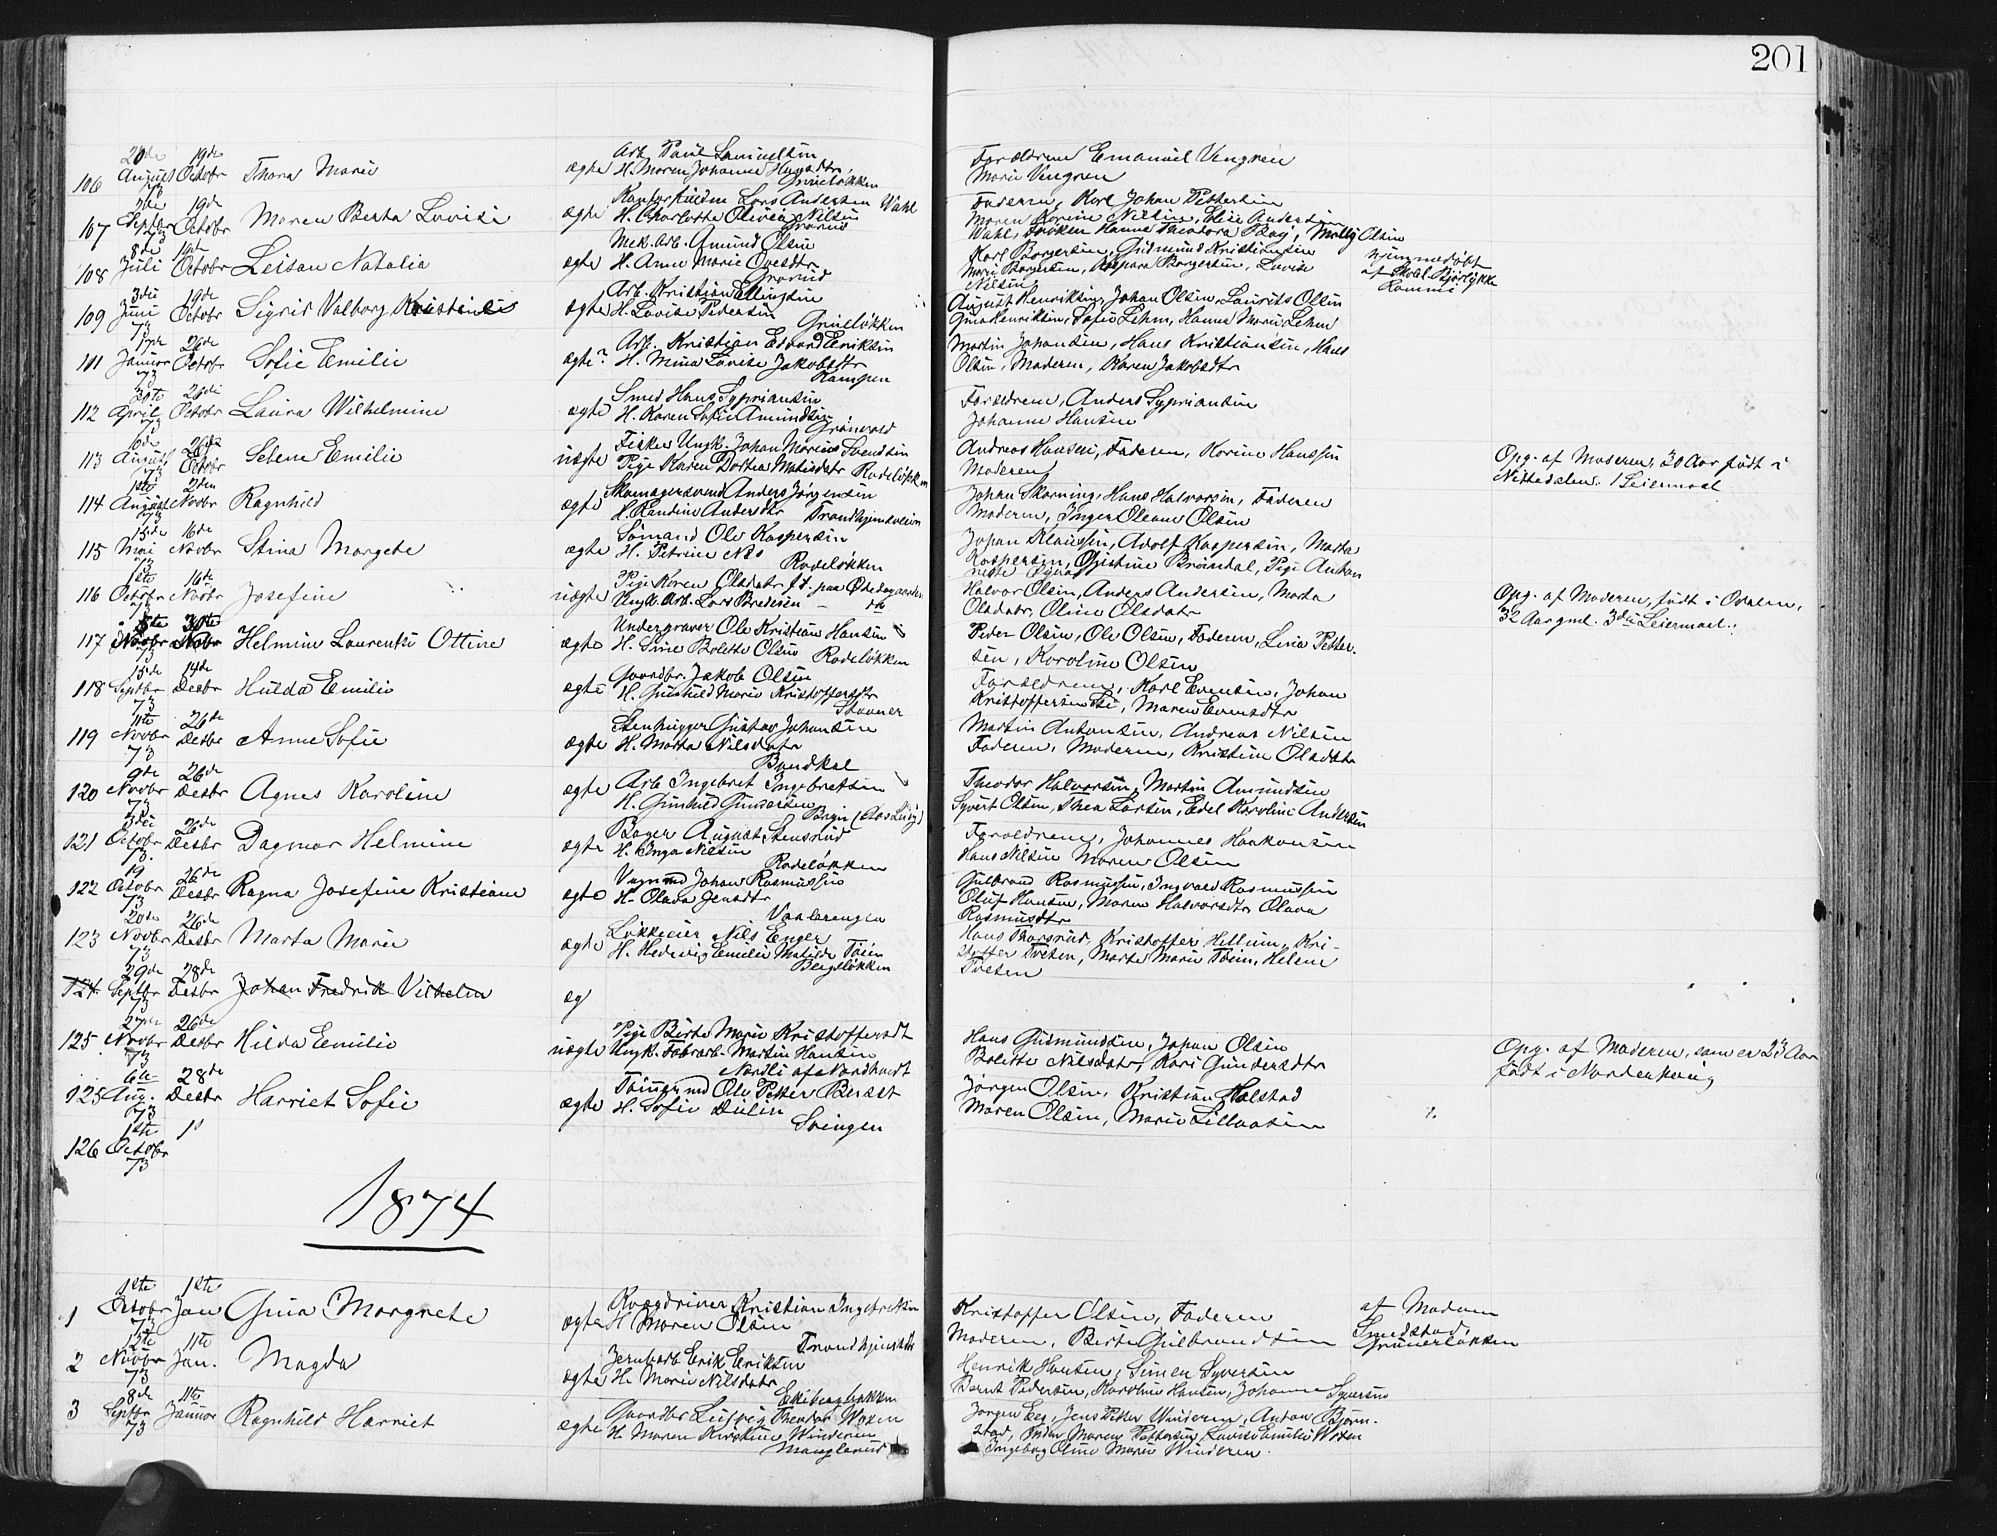 201
20de 19de
106 August Octobr Thora Marie ægte Arb. Paul Samuelsen
73 H. Maren Johanne Grüneløkken
Forældrene Emanuel Vengren
Marie Vengren
2den 19de
107 Septbr Octobr Maren Berta Lovise ægte Lars Andersen Wahl
73 H. Charlotte Olivia Nilsen
Grorud
Faderen, Karl Johan Pettersen
Maren Korine Nilsen, Elise Andersen
Wahl, Frøken Hanna Theodora Molly Olsen
8de 19de
108 Juli Octobr Natalia ægte Mek. Arb. Amund Olsen
H. Anne Marie
Grorud
Karl Borgersen, Gudmund Kristiansen
Marie Borgersen, Kaspara Borgersen, Lovise
Nilsen
hjemmedøbt
af Skol. Bjørlykke
3die 19de
109 Juni Octobr Sigrid Valborg ægte Arb. Kristian Ellingsen
73 H. Lovise Pedersen
Grüneløkken
August Henriksen, Johan Olsen, Laurits Olsen
Gina Henriksen, Sofie Lehm, Hanna Marie Lehm
17de 26de
101 Januar Octobr Sofie Emilie ægte? Arb. Kristian Edvard Eriksen
73 H. Mina Lovise Jakobsdtr
Kampen
Martin Johansen, Hans Kristiansen, Hans
Olsen, Moderen, Karen Jakobsdtr
30te 26de
112 April Octobr Laura Wilhelmine ægte Smed Hans Sypriansen
73 H. Karen Sofie Amundsen
Grønvold
Forældrene, Anders Sypriansen
Johanne Hansen
6de 26de
113 August Octobr Selene Emilie uægte Fisker Ungk. Johan Marius Svendsen
73 Pige Karen Dortea Matisdatr Rodeløkken
Andreas Hansen, Faderen, Korine Hanssen
Moderen
Opg. af Moderen, 30 Aar født i
Nittedalen. 1 Leiermaal
1ste 2den
114 August Novbr Ragnhild ægte Skomagersvend Anders Jørgensen
73 H. Randine Andersdtr Trondhjemsveien
Johan Skorning, Hans Halvorsen, Faderen
Moderen, Inger Oleane Olsen
15de 16de
115 Mai Novbr Stina Margete ægte Sømand Ole Kaspersen
73 H. Petrine
Rodeløkken
Johan Klausen, Adolf Kaspersen, Marta
Kaspersen, Brøndal, Pige Anton
1ste 16de
116 Octobr Novbr Josefine uægte Pige Karen Olsdatr
73 Ungk. Arb. Lars Bredesen
Halvor Olsen, Anders Andersen, Marta
Olsdatr, Oline Olsdatr
Opg. af Moderen, født i
32 Aar gml. 3die Leiermaal.
8de 30te
117 Novbr Novbr Helmine Laurentse Ottine ægte Undergraver Ole Kristian Hansen
73 H. Sine Bolette Olsen Rodeløkken
Peder Olsen, Ole Olsen, Faderen, Lina Petter-
sen, Karoline Olsen
15de 14de
118 Septbr Desbr Hulda Emilie ægte Gaardbr. Jakob Olsen
73 H. Gunhild Marie Kristoffersdtr
Stovner
Forældrene, Karl Evensen, Johan
Kristoffersen, Maren Evensdtr
11te 26de
119 Novbr Desbr Anne Sofie ægte Stenhugger Gustav Johansen
73 H. Marta Nilsdatr
Martin Antonsen, Andreas Nilsen
Faderen, Moderen, Kristine Olsdatr
9de 26de
120 Novbr Desbr Agnes Karoline ægte Arb Ingebret Ingebretsen
73 H. Gunhild Gundersen
Theodor Halvorsen, Martin Amundsen
Syvert Olsen, Thea Larsen, Edel Karoline Andersen
3die 26de
121 Octobr Desbr Dagmar Helmine ægte Bager August Stensrud
73. H. Inga Nilsen
Rodeløkken
Forældrene, Johannes Haakonsen
Hans Nilsen Maren Olsen
19 26de
122 Octobr Desbr Ragna Josefine Kristiane ægte Vognmd Johan Rasmussen
73 H. Olava Jensdtr
Vaalerengen
Gulbrand Rasmussen, Ingvald Rasmussen
Oluf Hansen, Maren Halvorsdtr, Olava
Rasmusdtr
20de 26de
123 Novbr Desbr Marta Marie ægte Løkkeeier Nils Enger
73 H. Hedevig Emilie Matilde Tøien
Bergsløkken
Hans Thorsrud, Kristoffer Hellum, Kri-
stoffer Tveten, Marte Marie Tøien, Helene
Tveten
29de 28de
124 Septbr Desbr Johan Fredrik Vilhelm æg
73
27de 26de
125 Novbr Desbr Hilda Emilie uægte Pige Birte Marie Kristoffersdt
73 Ungk. Fabrarb. Martin Hansen
Nordli af Nordhordt
Hans Gudmundsen, Johan Olsen
Bolette Nilsdatr, Kari Gundersdtr
Opg. af Moderen, som er 23 Aar
født i
6te 28de
125 Aug. Desbr Harriet Sofie ægte Tømmermd Ole Petter Berset
73 H. Sofie Dulin
Svingen
Jørgen Olsen, Kristian Holstad
Maren Olsen, Marie
1ste 1
126 Octobr
73
1874
1ste 1ste
1 Octobr Jan Gina Margrete ægte Kristian Ingebretsen
73 H Maren Olsen
Kristoffer Olsen, Faderen
Moderen, Berte Gulbrandsen
af Madam
Smedstad,
Grünerløkken
12te 11te
2 Novbr Jan. Magda ægte Jernbarb Erik Eriksen
73 H. Marie Nilsdatr
Ekebergbakken
Henrik Hansen, Simen Syversen
Bernt Pedersen, Karoline Hansen, Johanne Syversen
8de 11te
3 Septbr Januar Ragnhild Harriet ægte Gaardbr Ludvig Theodor Woxen
73 H. Maren Kirstine Winderen
Manglerud
Jørgen Eeg, Jens Petter Winderen, Anton Bjørn-
stad, Maren Pettersen, Lovise Emilie Woxen
Ingeborg Oline Marie Winderen.